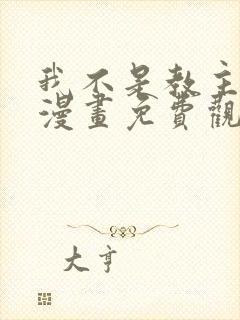 我不是教主
漫畫免費觀
大亨